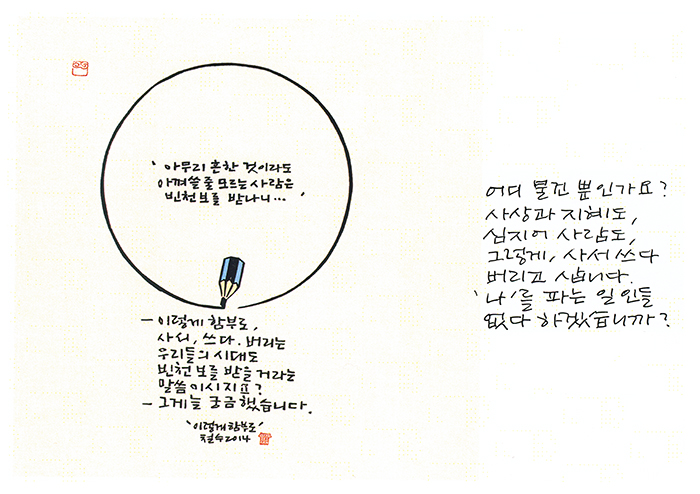 '아무리 흔한 것이라도
아껴쓸 줄 모르는 사람은
빈천보를 받나니…'
— 이렇게 함부로,
사서, 쓰다. 버리는
우리들의 시대도
빈천보를 받을 거라는
말씀이시지요?
— 그게 늘 궁금했습니다.
'이렇게 함부로'
철수 2014
어디 물건 뿐인가요?
사상과 지혜도,
심지어 사람도,
그렇게, 사서 쓰다
버리고 삽니다.
'나'를 파는 일인들
없다 하겠습니까?